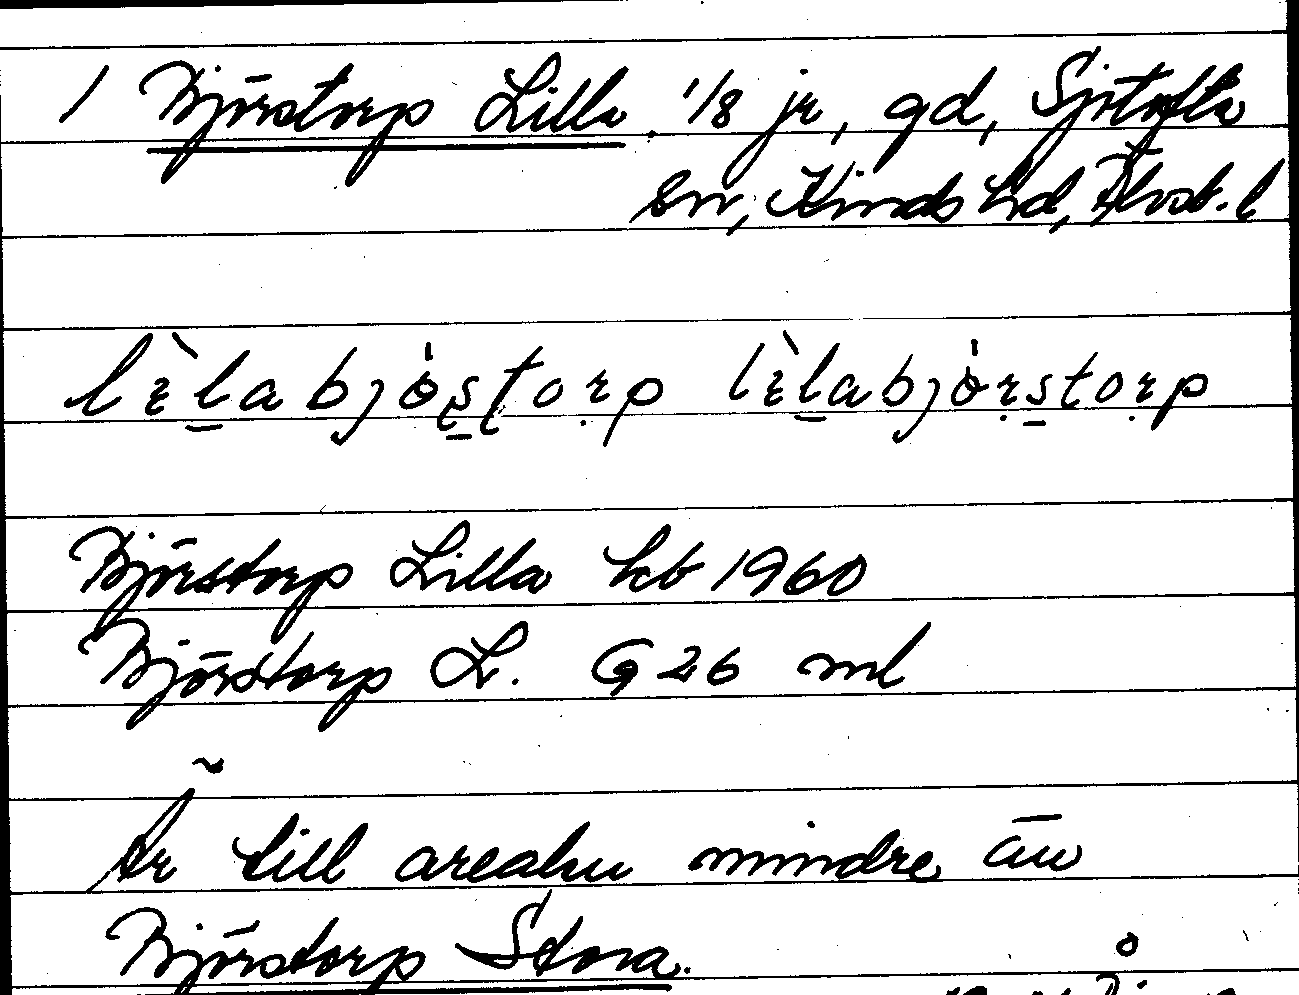 1 Björstorp Lilla, 1/8 jr, gd, Sjötofta
sn, Kinds hd, Älvsb. l
lɛ̀la bjöstorp lɛ̀labjörstorp
Björstorp Lilla kb 1960
Björstorp L. G 26 ml
Är till arealen mindre än
Björstorp Stora.